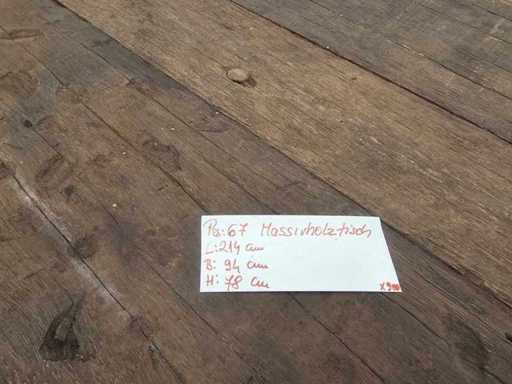 Pa:67 Massivholztisch
L:214 cm
B: 94 cm
H: 78 cm